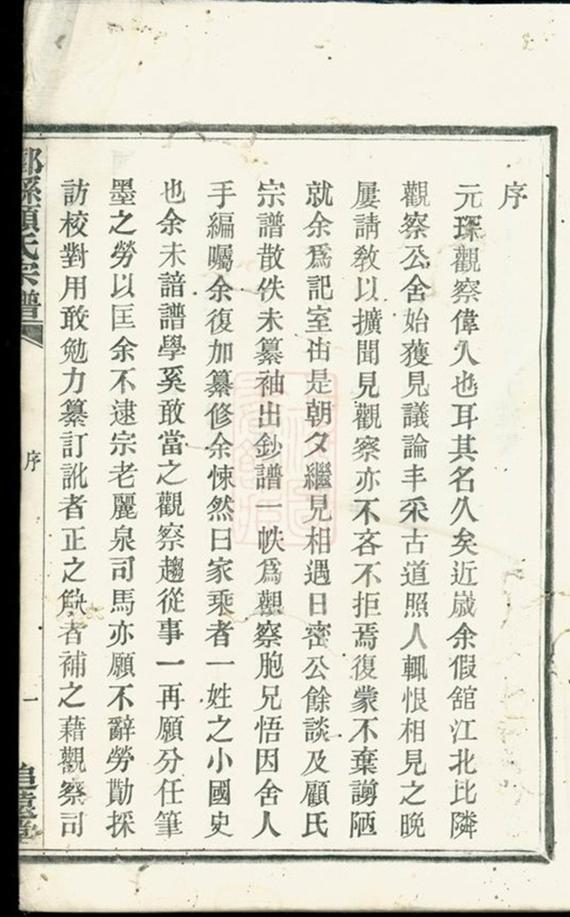 序
元琛觀察偉人也耳其名久矣近歲余假舘江北比隣
觀察公舍始獲見議論丰采古道照人輒恨相見之晚
屢請敎以擴聞見觀察亦不吝不拒焉復蒙不棄謭陋
就余爲記室由是朝夕繼見相遇日密公餘談及顧氏
宗譜散佚未纂袖出鈔譜一帙爲觀察胞兄悟因舍人
手編囑余復加纂修余悚然曰家乘者一姓之小國史
也余未諳譜學奚敢當之觀察趨從事一再願分任筆
墨之勞以匡余不逮宗老麗泉司馬亦願不辭勞勩採
訪校對用敢勉力纂訂訛者正之缺者補之藉觀察司
顧氏宗譜
序
一
追遠堂